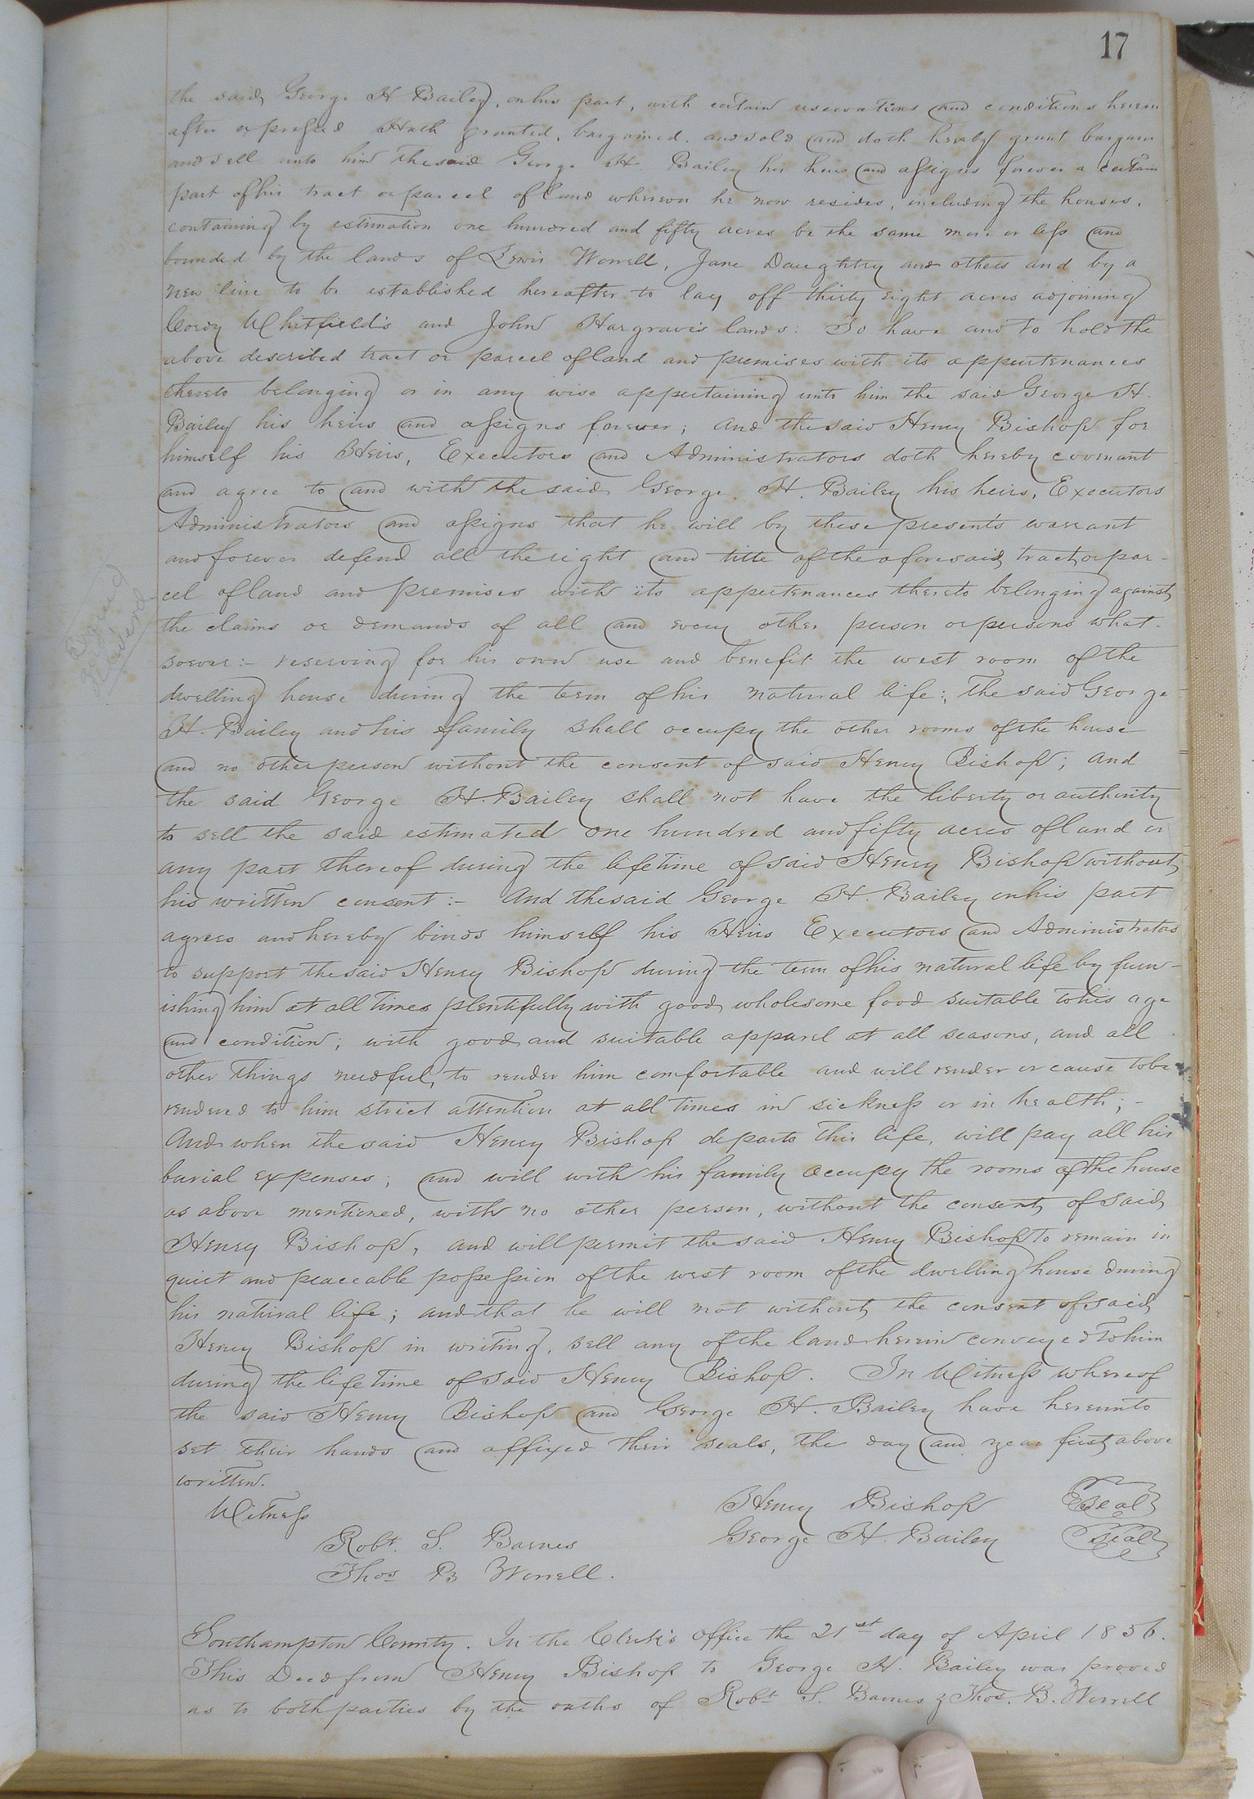 17
the said George H Bailey, on his part, with certain reservations and conditions herein
after expressed Hath granted, bargained, and sold and doth hereby grant bargain
and sell unto him the said George H Bailey his heirs and assigns forever a certain
part of his tract or parcel of land whereon he now resides, including the houses,
containing by estimation one hundred and fifty acres be the same more or less and
bounded by the lands of Lewis Worrell, Jane Daughtry and others and by a
new line to be established hereafter to lay off thirty eight acres adjoining
Cordy Whitfield's and John Hargrave's lands: To have and to hold the
above described tract or parcel of land and premises with its appurtenances
thereto belonging or in any wise appertaining unto him the said George H.
Bailey his heirs and assigns forever; And the said Henry Bishop for
himself his Heirs, Executors and Administrators doth hereby covenant
and agree to and with the said George H. Bailey his heirs, Executors
Administrators and assigns that he will by these presents warrant
and forever defend all the right and title of the aforesaid tract or par-
cel of land and premises with its appertenances thereto belonging against
the claims or demands of all and every other person or persons what-
soever:- reserving for his own use and benefit the west room of the
dwelling house during the term of his natural life; The said George
H. Bailey and his family shall occupy the other rooms of the house
and no other person without the consent of said Henry Bishop; And
the said George H. Bailey shall not have the liberty or authority
to sell the said estimated one hundred and fifty acres of land or
any part thereof during the lifetime of said Henry Bishop without
his written consent:- And the said George H. Bailey on his part
agrees and hereby binds himself his Heirs Executors and Administrators
to support the said Henry Bishop during the term of his natural life by furn-
ishing him at all times plentifully with good wholesome food suitable to his age
and condition; with good and suitable apparel at all seasons, and all
other things needful, to render him comfortable and will render or cause to be
rendered to him strict attention at all times in sickness or in health;-
And when the said Henry Bishop departs this life, will pay all his
burial expenses; and will with his family occupy the rooms of the house
as above mentioned, with no other person, without the consent of said
Henry Bishop, and will permit the said Henry Bishop to remain in
quiet and peaceable possession of the west room of the dwelling house during
his natural life; and that he will not without the consent of said
Henry Bishop in writing, sell any of the land herein conveyed to him
during the life time of said Henry Bishop. In Witness whereof
the said Henry Bishop and George H. Bailey have hereunto
set their hands and affixed their seals, the day and year first above
written.
Witness
Henry Bishop Seal
Robt. S. Barnes George H. Bailey Seal
Thos B Worrell.
Southampton County. In the Clerk's Office the 21st day of April 1856.
This Deed from Henry Bishop to George H. Bailey was proved
as to both parties by the oaths of Robt S. Barnes & Thos. B. Worrell